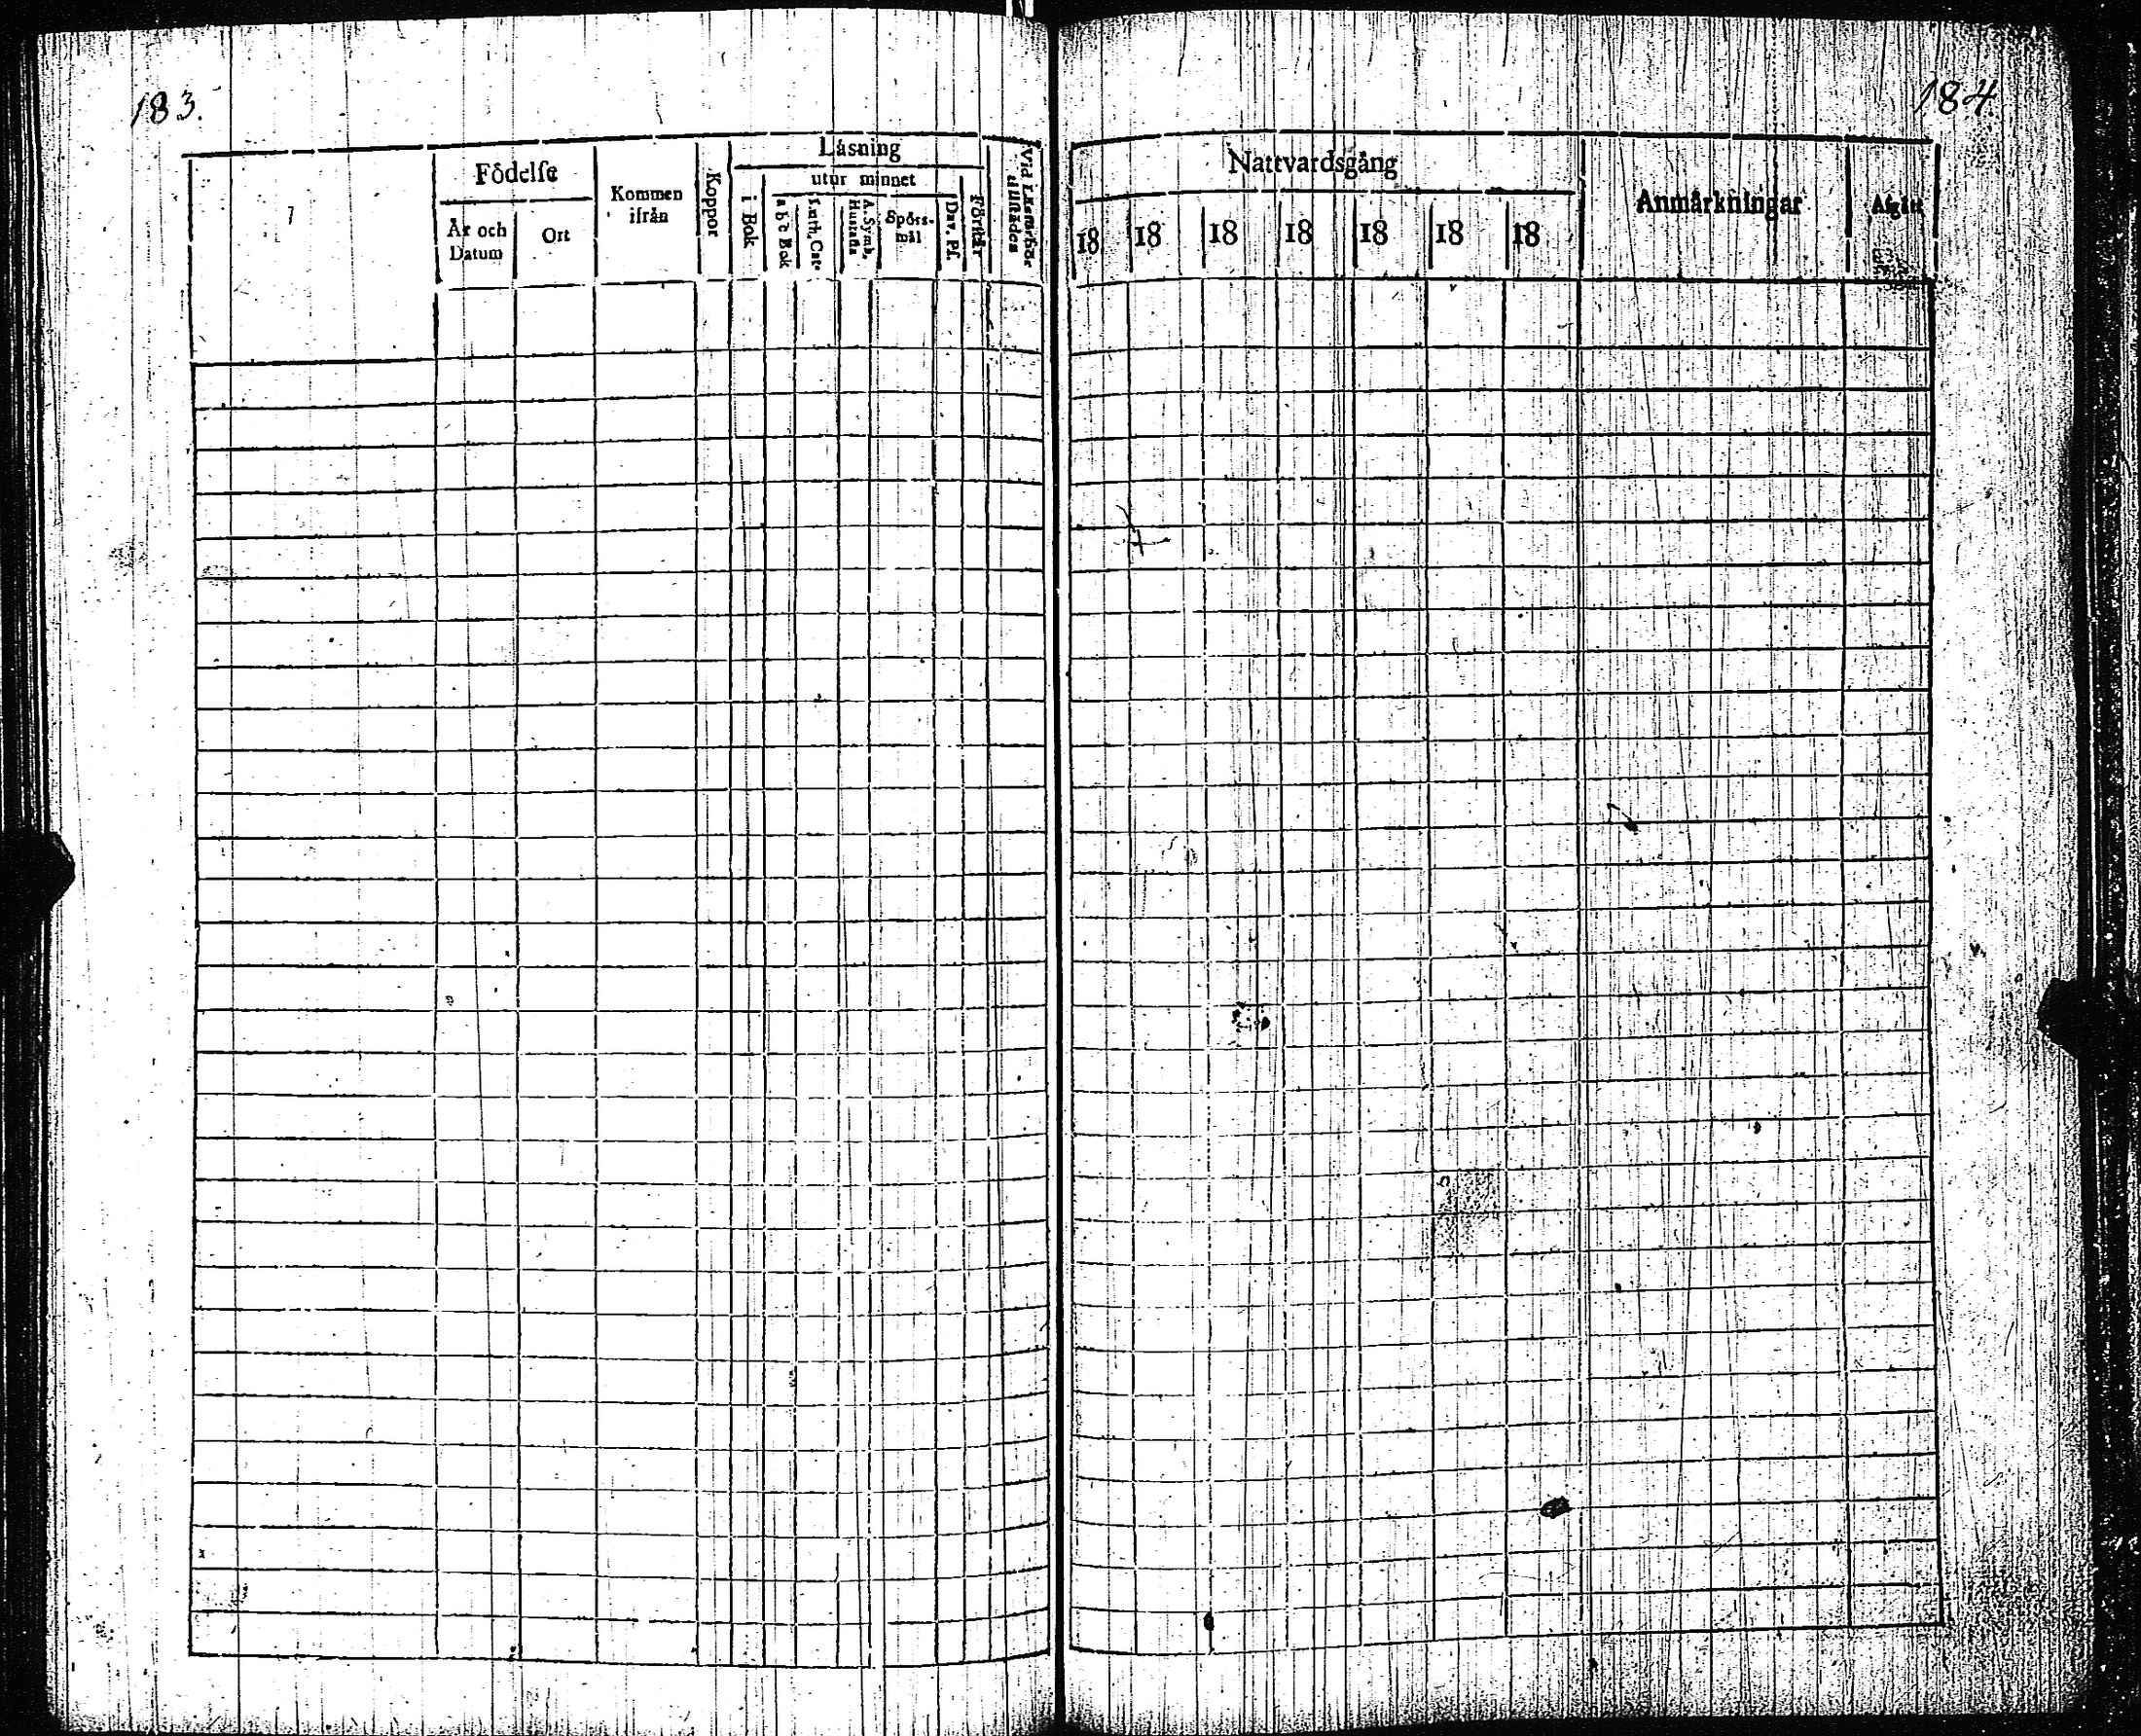 183.
Födelſe
År och Datum
Ort
Kommen ifrån
Koppor
Läsning
i Bok
utur minnet
a b c Bok
Luth. Cat.
A. Symb. Hustafla
Spörs-mål
Dav. Pſ.
Förstår
184.
Nattvardsgång
18 18 18 18 18 18 18
Anmärkningar
Afgått